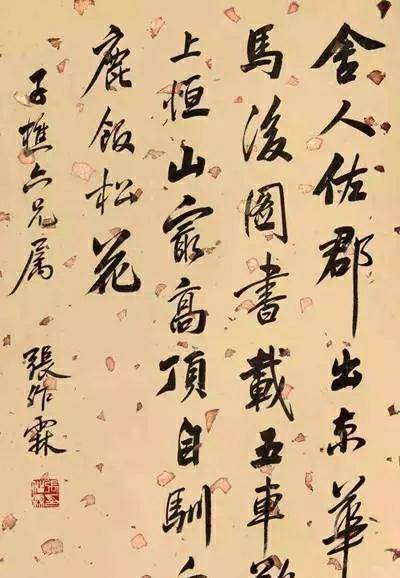 舍人佐郡出東華
馬後圖書載五車
上恒山最高頂自馴
鹿飯松花
子樵六兄屬
張作霖